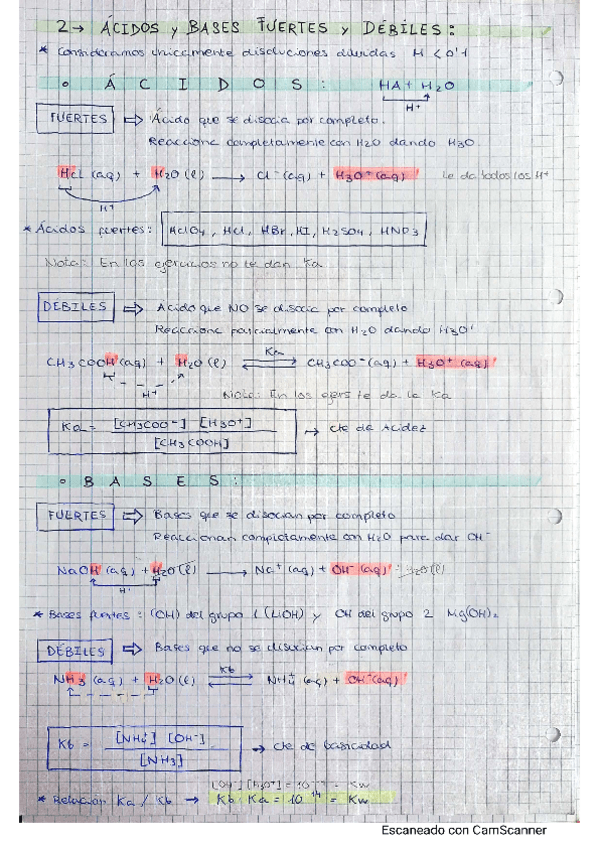 2→ ÁCIDOS y BASES FUERTES y DÉBILES:
* Consideramos únicamente disoluciones diluidas M < 0'1
• ÁCIDOS: HA + H2O
H+
FUERTES ⇒ Ácido que se disocia por completo.
Reacciona completamente con H2O dando H3O.
HCl (aq) + H2O (l) → Cl⁻ (aq) + H3O+ (aq) Le da todos los H+
H+
* Ácidos fuertes: HClO4, HCl, HBr, HI, H2SO4, HNO3
Nota: En los ejercicios no te dan Ka
DÉBILES ⇒ Ácido que NO se disocia por completo
Reacciona parcialmente con H2O dando H3O+
Ka
CH3COOH (aq) + H2O (l) ⇌ CH3COO⁻ (aq) + H3O+ (aq)
H+
Nota: En los ejers te da la Ka
Ka = [CH3COO⁻] [H3O+] / [CH3COOH] → cte de Acidez
• BASES:
FUERTES ⇒ Bases que se disocian por completo
Reaccionan completamente con H2O para dar OH⁻
NaOH (aq) + H2O (l) → Na+ (aq) + OH⁻ (aq) + H2O (l)
H+
* Bases fuertes: (OH) del grupo 1 (LiOH) y OH del grupo 2 Mg(OH)2
DÉBILES ⇒ Bases que no se disocian por completo
Kb
NH3 (aq) + H2O (l) ⇌ NH4+ (aq) + OH⁻ (aq)
Kb = [NH4+] [OH⁻] / [NH3] → cte de basicidad
[OH⁻] [H3O+] = 10⁻¹⁴ = Kw
* Relación Ka / Kb → Kb · Ka = 10⁻¹⁴ = Kw
Escaneado con CamScanner